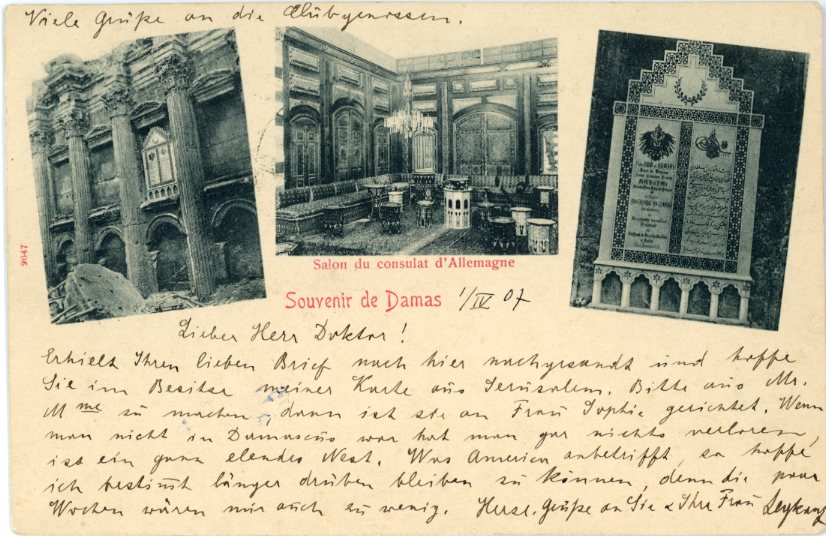 Viele Grüße an die Clubgenossen.
Salon du consulat d'Allemagne
9647
Souvenir de Damas 1/IV 07
Lieber Herr Doktor!
Erhielt Ihren lieben Brief nach hier nachgesandt und hoffe
Sie im Besitze meiner Karte aus Jerusalem. Bitte aus Mr.
Mme zu machen, dann ist sie an Frau Sophie gerichtet. Wenn
man nicht in Damascus war hat man gar nichts verloren,
ist ein ganz elendes Nest. Was America anbetrifft, so hoffe
ich bestimt länger drüben bleiben zu können, denn die paar
Wochen wären mir auch zu wenig. Herzl. Grüße an Sie & Ihre Frau